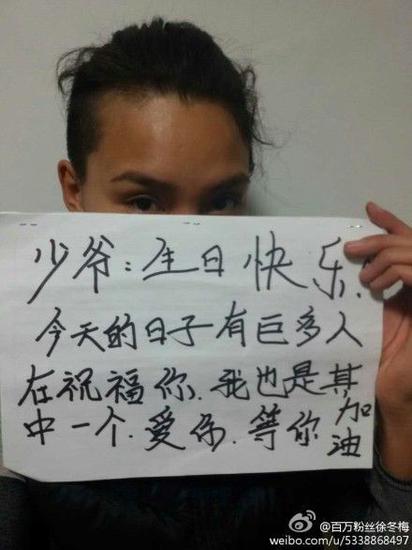 少爷:生日快乐.
今天的日子有巨多人
在祝福你.我也是其
中一个.爱你.等你加油
@百万粉丝徐冬梅
weibo.com/u/5338868497